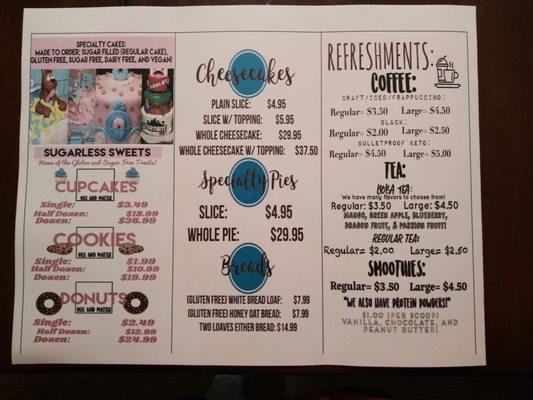 SPECIALTY CAKES:
MADE TO ORDER, SUGAR FILLED (REGULAR CAKE),
GLUTEN FREE, SUGAR FREE, DAIRY FREE, AND VEGAN!
SUGARLESS SWEETS
Home of the Gluten and Sugar Free Treats!
CUPCAKES
MIX AND MATCH!
Single: $3.49
Half Dozen: $18.99
Dozen: $36.99
COOKIES
MIX AND MATCH!
Single: $1.99
Half Dozen: $10.99
Dozen: $19.99
DONUTS
MIX AND MATCH!
Single: $2.49
Half Dozen: $12.99
Dozen: $24.99
Cheesecakes
PLAIN SLICE: $4.95
SLICE W/ TOPPING: $5.95
WHOLE CHEESECAKE: $29.95
WHOLE CHEESECAKE W/ TOPPING: $37.50
Specialty Pies
SLICE: $4.95
WHOLE PIE: $29.95
Breads
(GLUTEN FREE) WHITE BREAD LOAF: $7.99
(GLUTEN FREE) HONEY OAT BREAD: $7.99
TWO LOAVES EITHER BREAD: $14.99
REFRESHMENTS:
COFFEE:
CRAFT/ICED/FRAPPUCCINO:
Regular= $3.50 Large= $4.50
BLACK:
Regular= $2.00 Large= $2.50
BULLETPROOF KETO:
Regular= $4.50 Large= $5.00
TEA:
BOBA TEA:
We have many flavors to choose from!
Regular: $3.50 Large: $4.50
MANGO, GREEN APPLE, BLUEBERRY,
DRAGON FRUIT, & PASSION FRUIT!
REGULAR TEA:
Regular= $2.00 Large= $2.50
SMOOTHIES:
Regular= $3.50 Large= $4.50
"WE ALSO HAVE PROTEIN POWDERS!"
$1.00 (PER SCOOP)
VANILLA, CHOCOLATE, AND
PEANUT BUTTER!